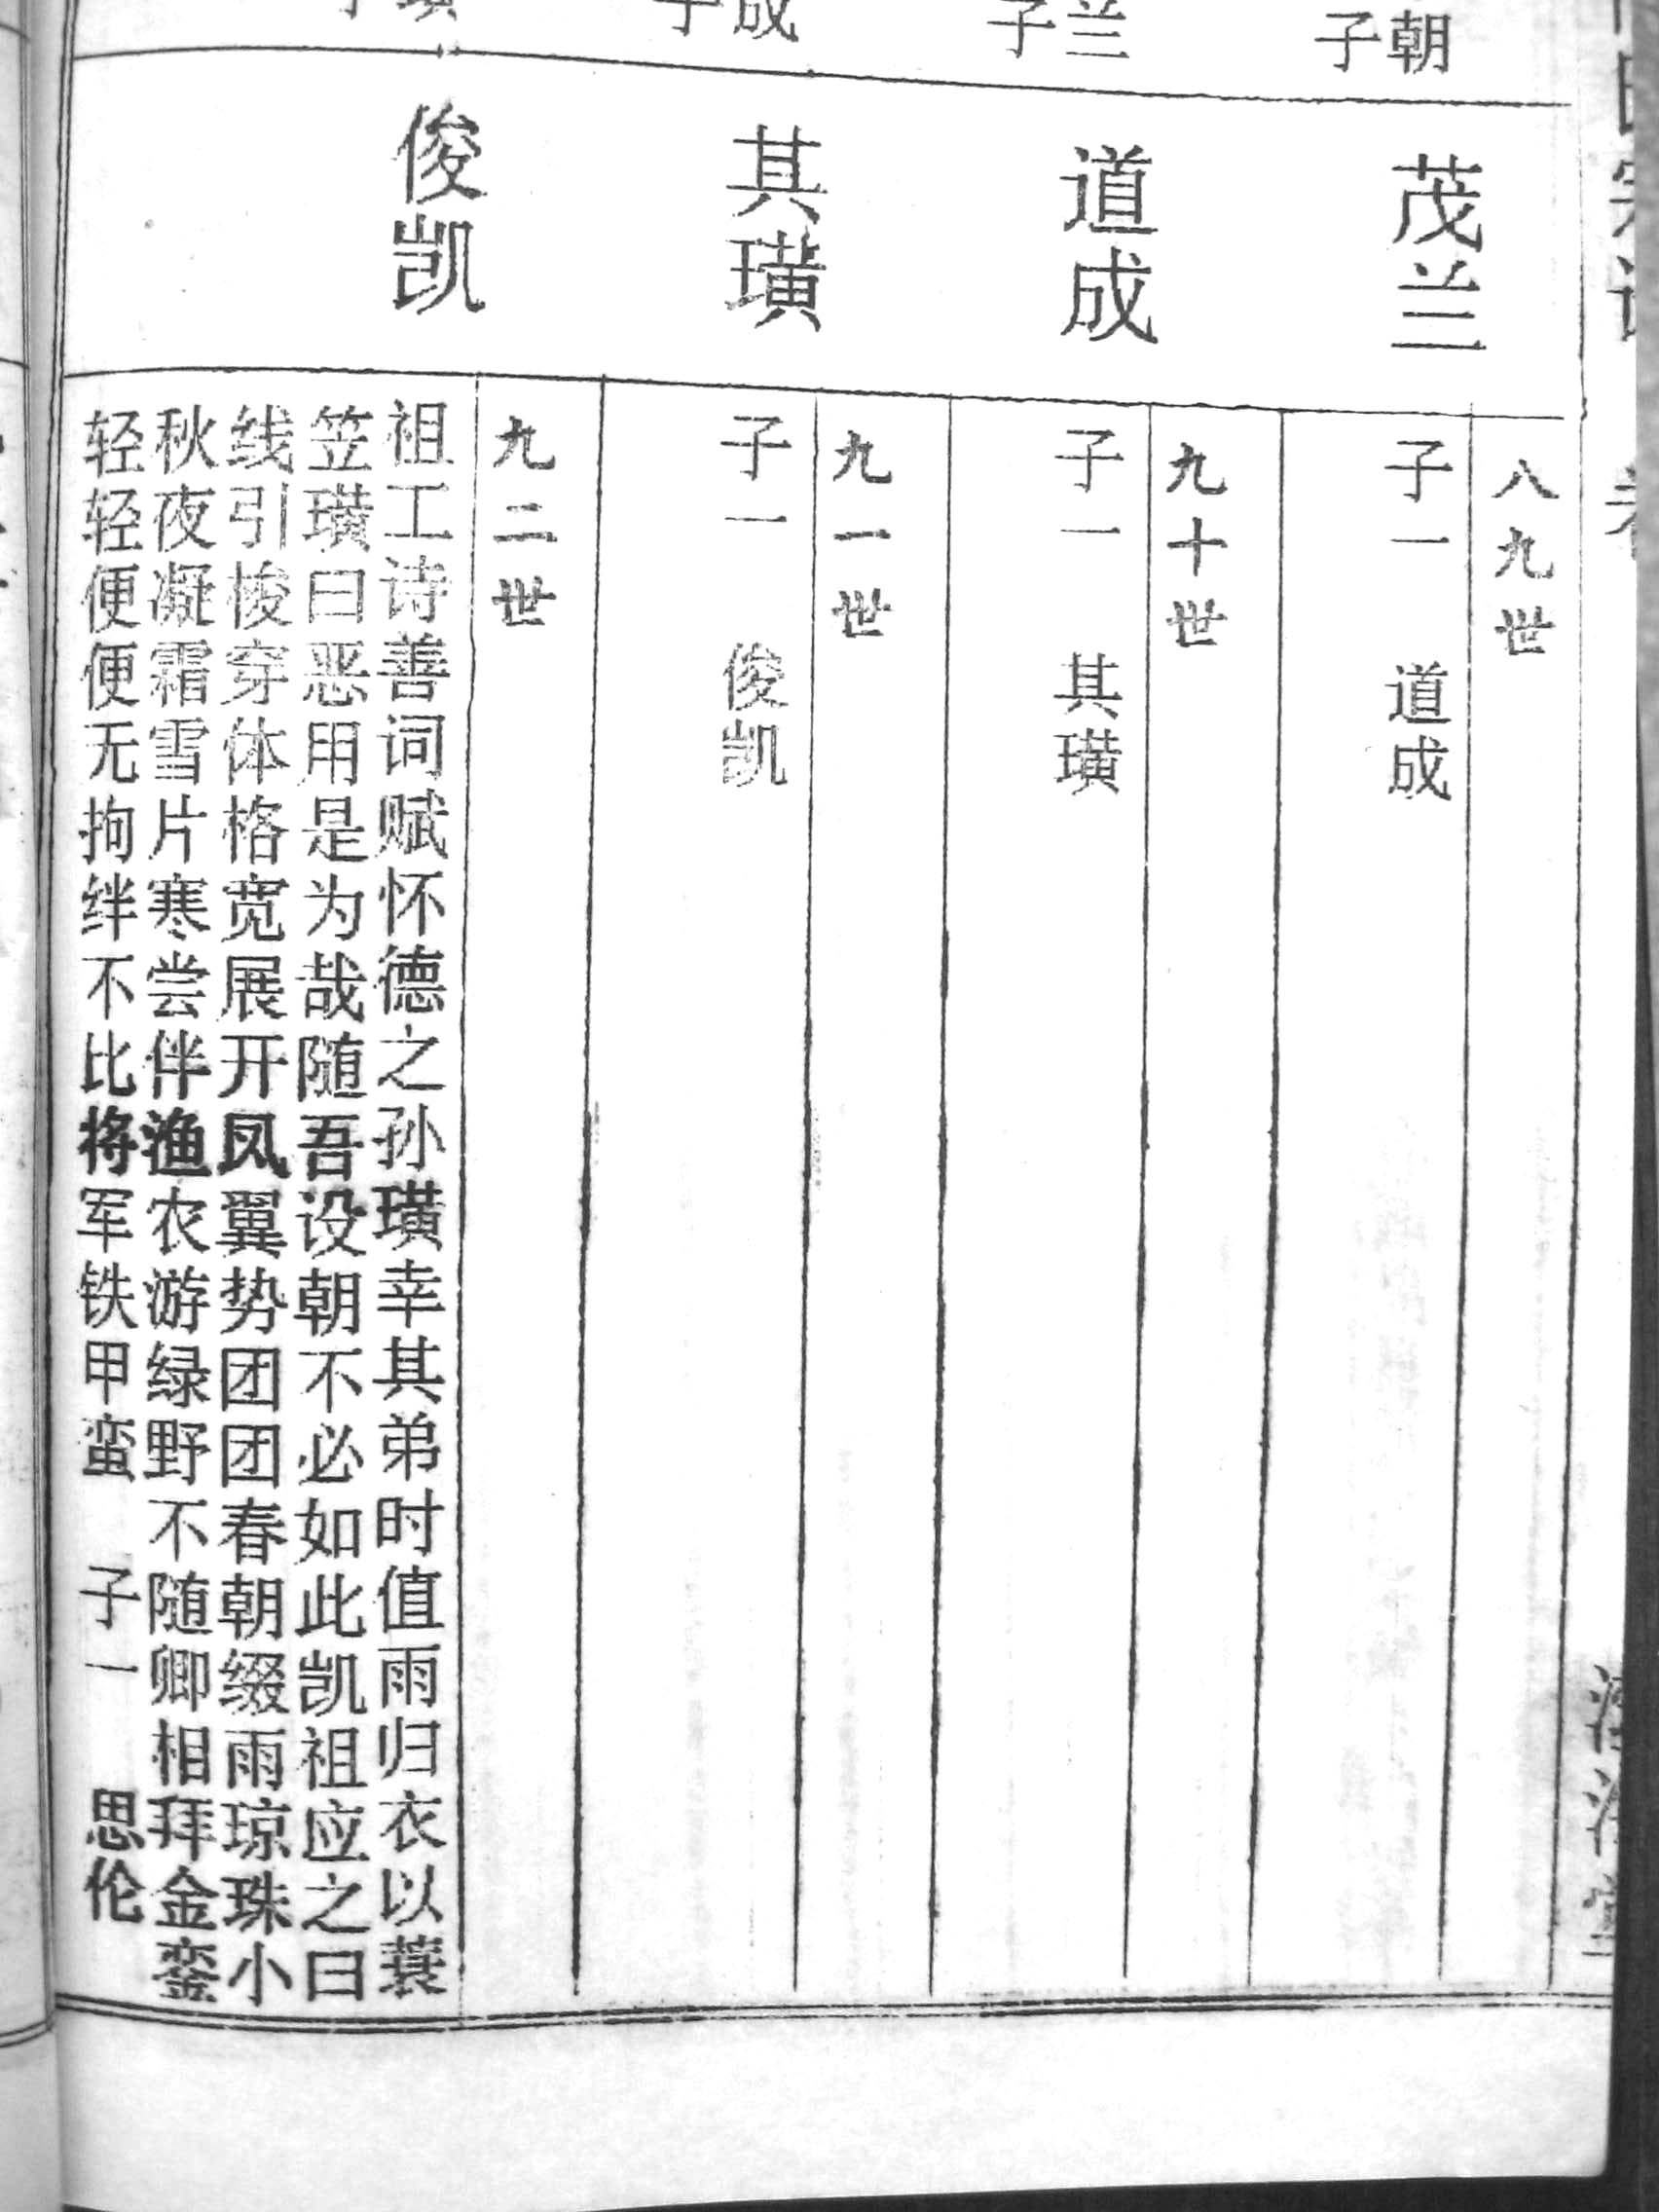 朝子
茂兰
八九世
子一 道成
兰子
道成
九十世
子一 其璜
成子
其璜
九一世
子一 俊凯
俊凯
九二世
祖工诗善词赋怀德之孙璜幸其弟时值雨归衣以蓑
笠璜曰恶用是为哉随吾设朝不必如此凯祖应之曰
线引梭穿体格宽展开凤翼势团团春朝缀雨琼珠小
秋夜凝霜雪片寒尝伴渔农游绿野不随卿相拜金銮
轻轻便便无拘绊不比将军铁甲蛮 子一 思伦